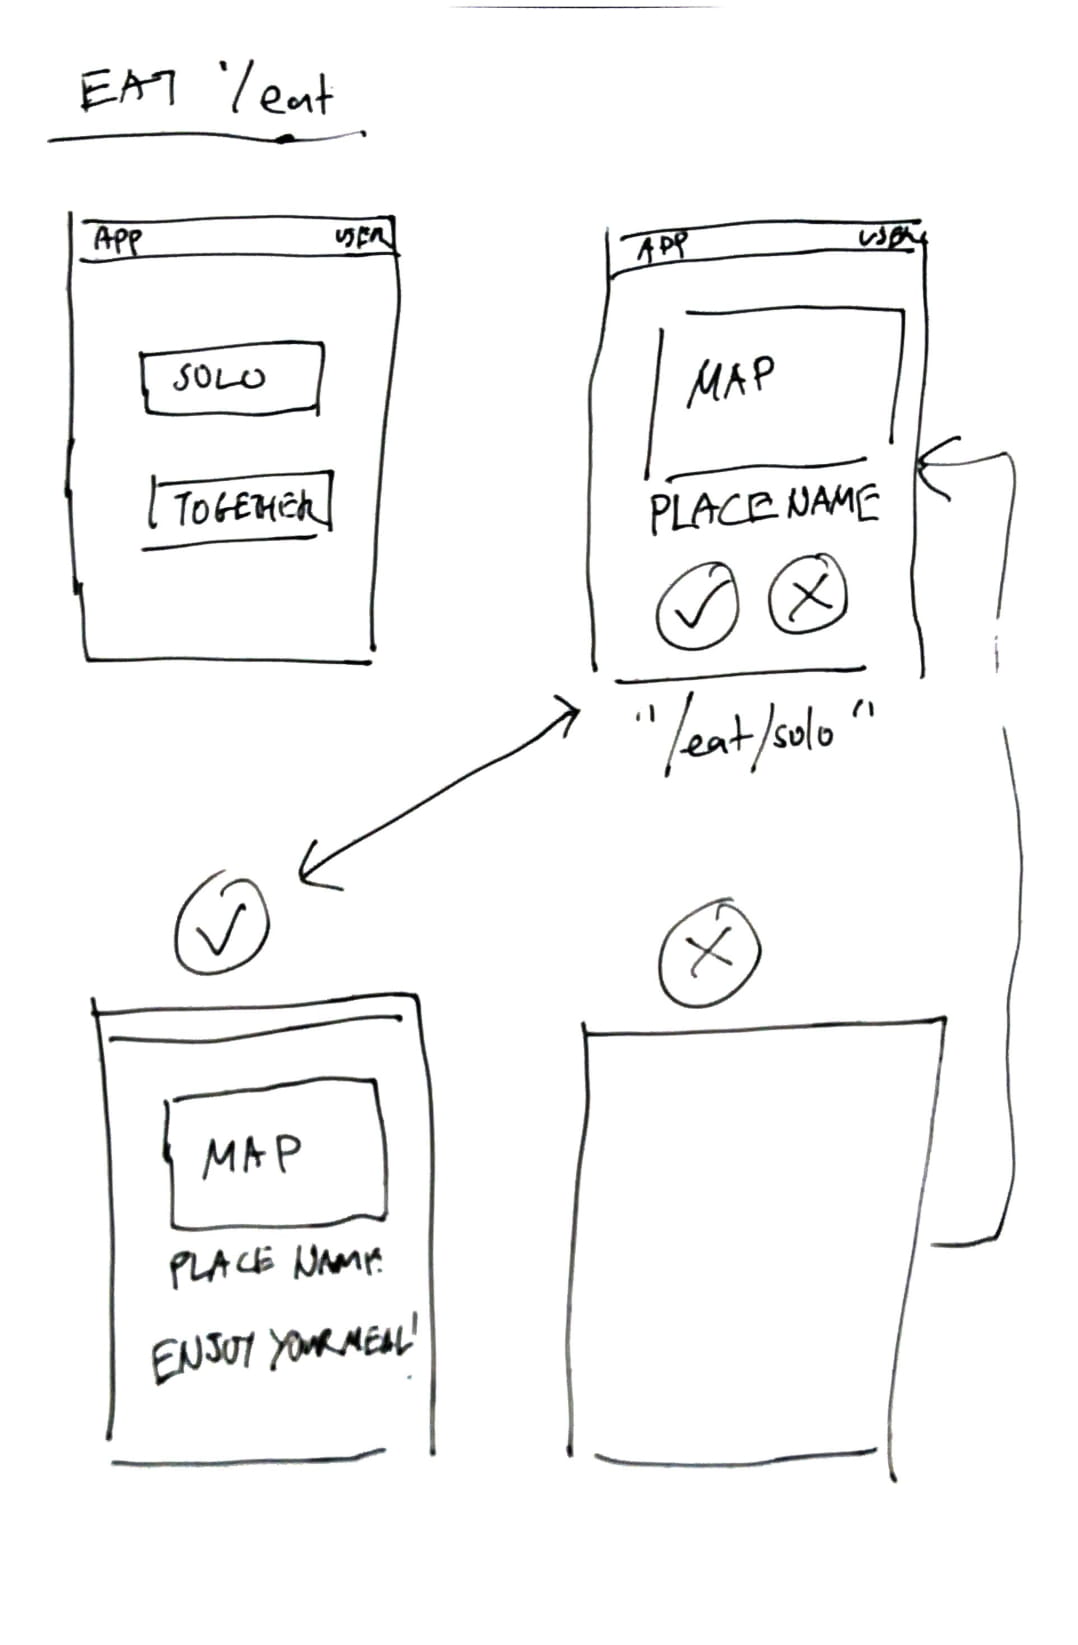 EAT "/eat
APP USER
SOLO
TOGETHER
APP USER
MAP
PLACE NAME
"/eat/solo"
MAP
PLACE NAME
ENJOY YOUR MEAL!